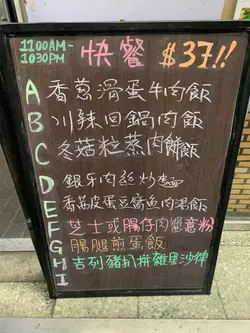 1100AM-
1030PM
快餐 $37!!
A 香葱滑蛋牛肉飯
B 川辣回鍋肉飯
C 冬菇粒蒸肉餅飯
D
E 銀牙肉絲炒麵
F 香茜皮蛋豆腐魚肉湯飯
G 芝士或腸仔肉醬意粉
H 腸腿煎蛋飯
I 吉列豬扒拼雜果沙律